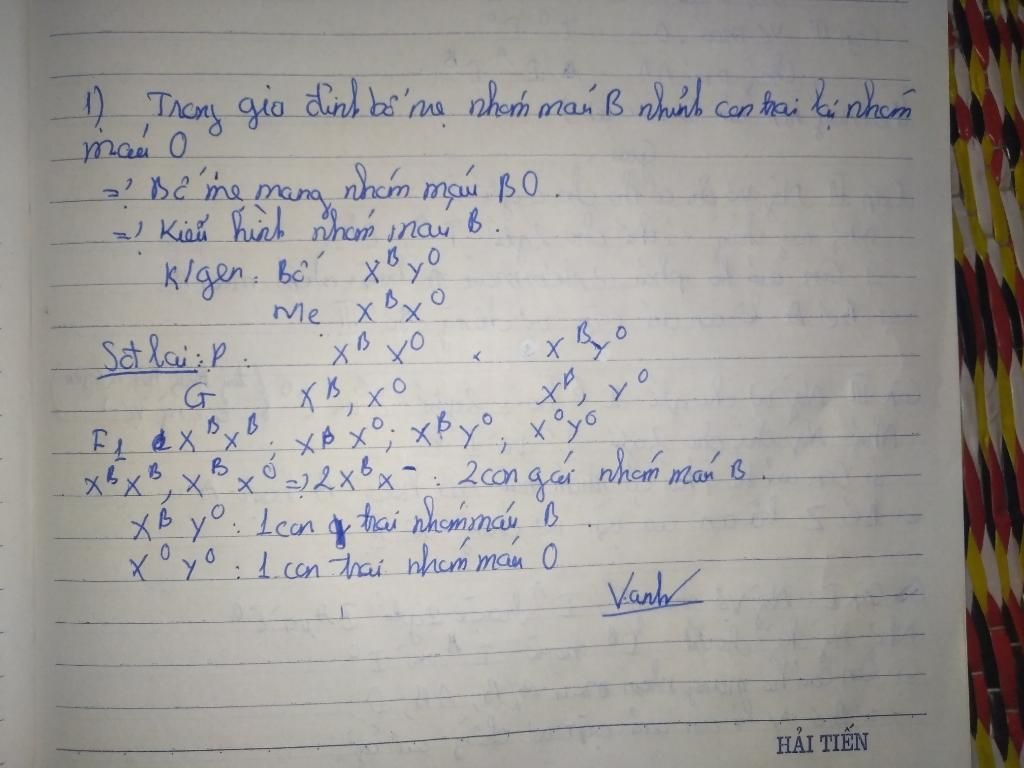 1) Trong gia đình bố mẹ nhóm máu B nhưng con trai lại nhóm
máu O
=> Bố mẹ mang nhóm máu BO.
=> Kiểu hình nhóm máu B.
K/gen: Bố X^B Y^O
Mẹ X^B X^O
Sơ đồ lai: P: X^B X^O × X^B Y^O
G X^B, X^O X^B, Y^O
F1 X^B X^B; X^B X^O; X^B Y^O; X^O Y^O
X^B X^B, X^B X^O => 2X^B X^-: 2 con gái nhóm máu B.
X^B Y^O: 1 con trai nhóm máu B.
X^O Y^O: 1 con trai nhóm máu O
Vanh
HẢI TIẾN